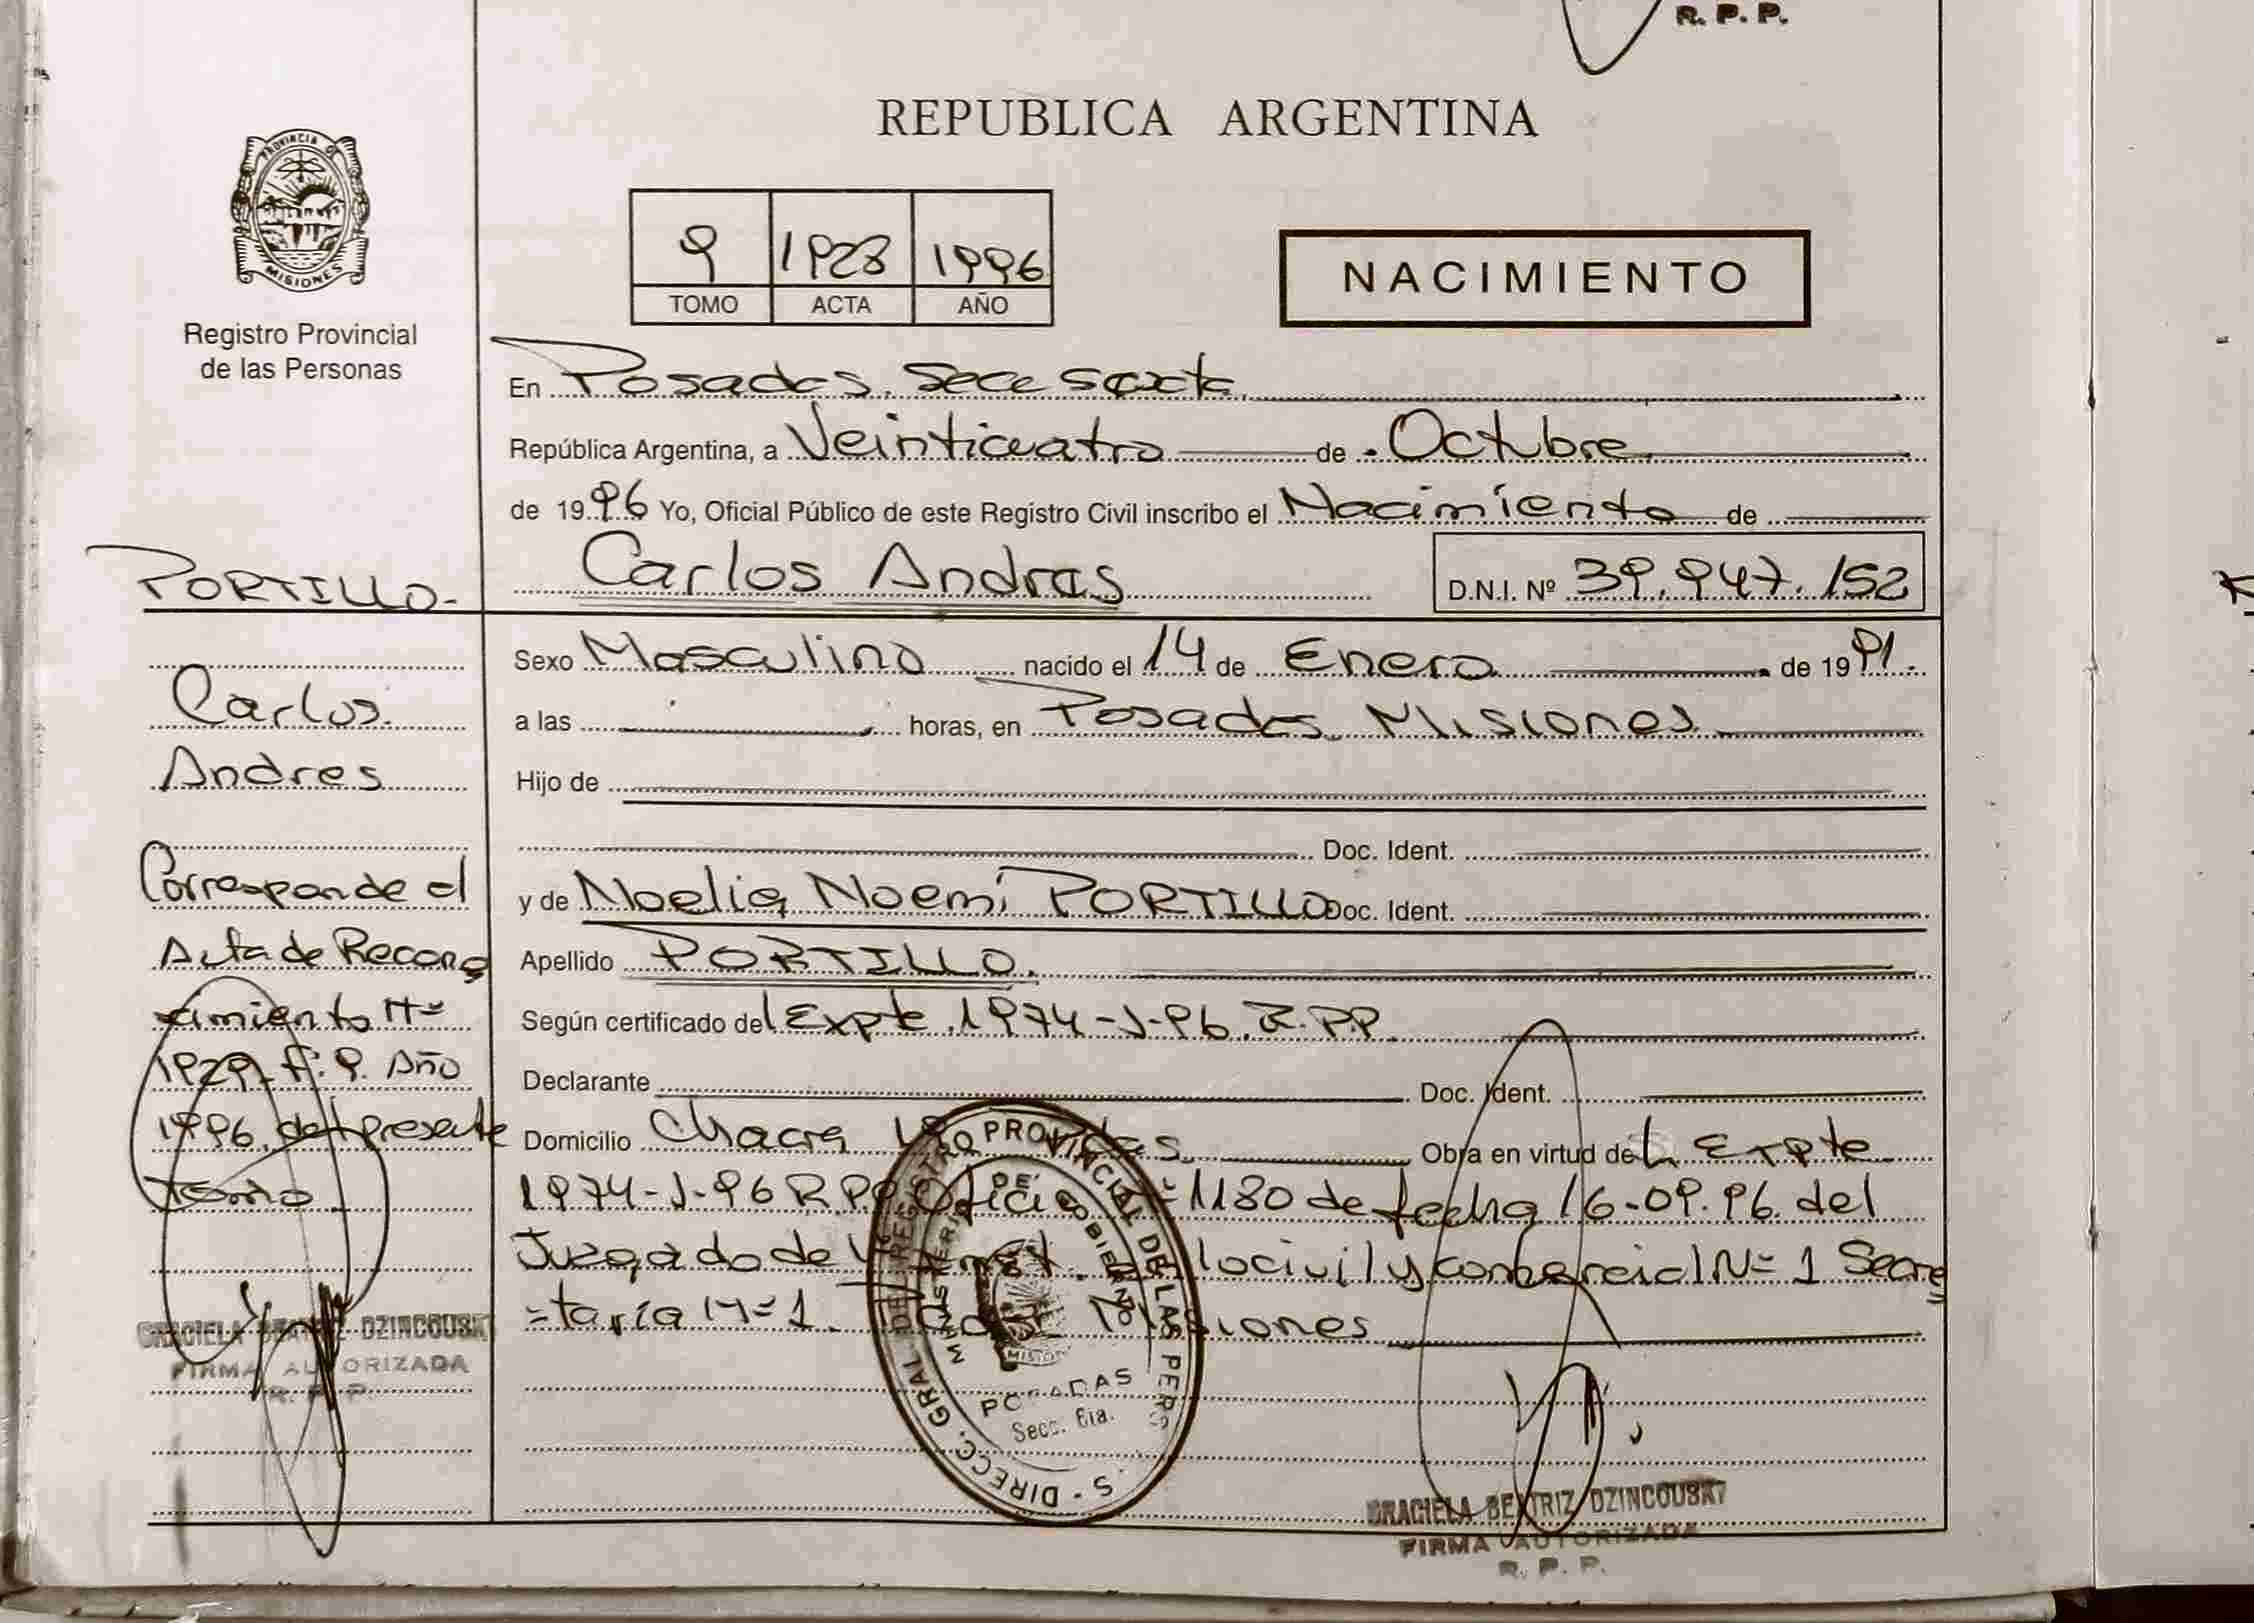 R. P. P.
REPUBLICA ARGENTINA
PROVINCIA DE
MISIONES
Registro Provincial
de las Personas
9 1928 1996
TOMO ACTA AÑO
NACIMIENTO
En Posadas. Secc Sexta
República Argentina, a Veinticuatro de Octubre
de 1996 Yo, Oficial Público de este Registro Civil inscribo el Nacimiento de
Carlos Andras D.N.I. Nº 39.947.152
Sexo Masculino nacido el 14 de Enero de 1991.
a las horas, en Posadas Misiones
Hijo de
Doc. Ident.
y de Noelia Noemí PORTILLO Doc. Ident.
Apellido PORTILLO.
Según certificado del Expte 1974-J-96.R.P.P.
Declarante Doc. Ident.
Domicilio Chacra Obra en virtud del Expte
1974-J-96 R.P.P. Oficio 1180 de fecha 16-09.96. del
Juzgado de civil y comercial N= 1 Secre
=taría N=1. Misiones
PORTILLO-
Carlos
Andres
Corresponde al
Acta de Recono
cimiento Nº
1929 - Tº: 9. Año
1996. del presente
tomo
GRACIELA BEATRIZ DZINCOUSKY
FIRMA AUTORIZADA
R. P. P.
DIRECC. GRAL. DEL REGISTRO PROVINCIAL DE LAS PERS
MINISTERIO DE GOBIERNO
POSADAS
Secc. 6ta.
GRACIELA BEATRIZ DZINCOUSKY
FIRMA AUTORIZADA
R. P. P.